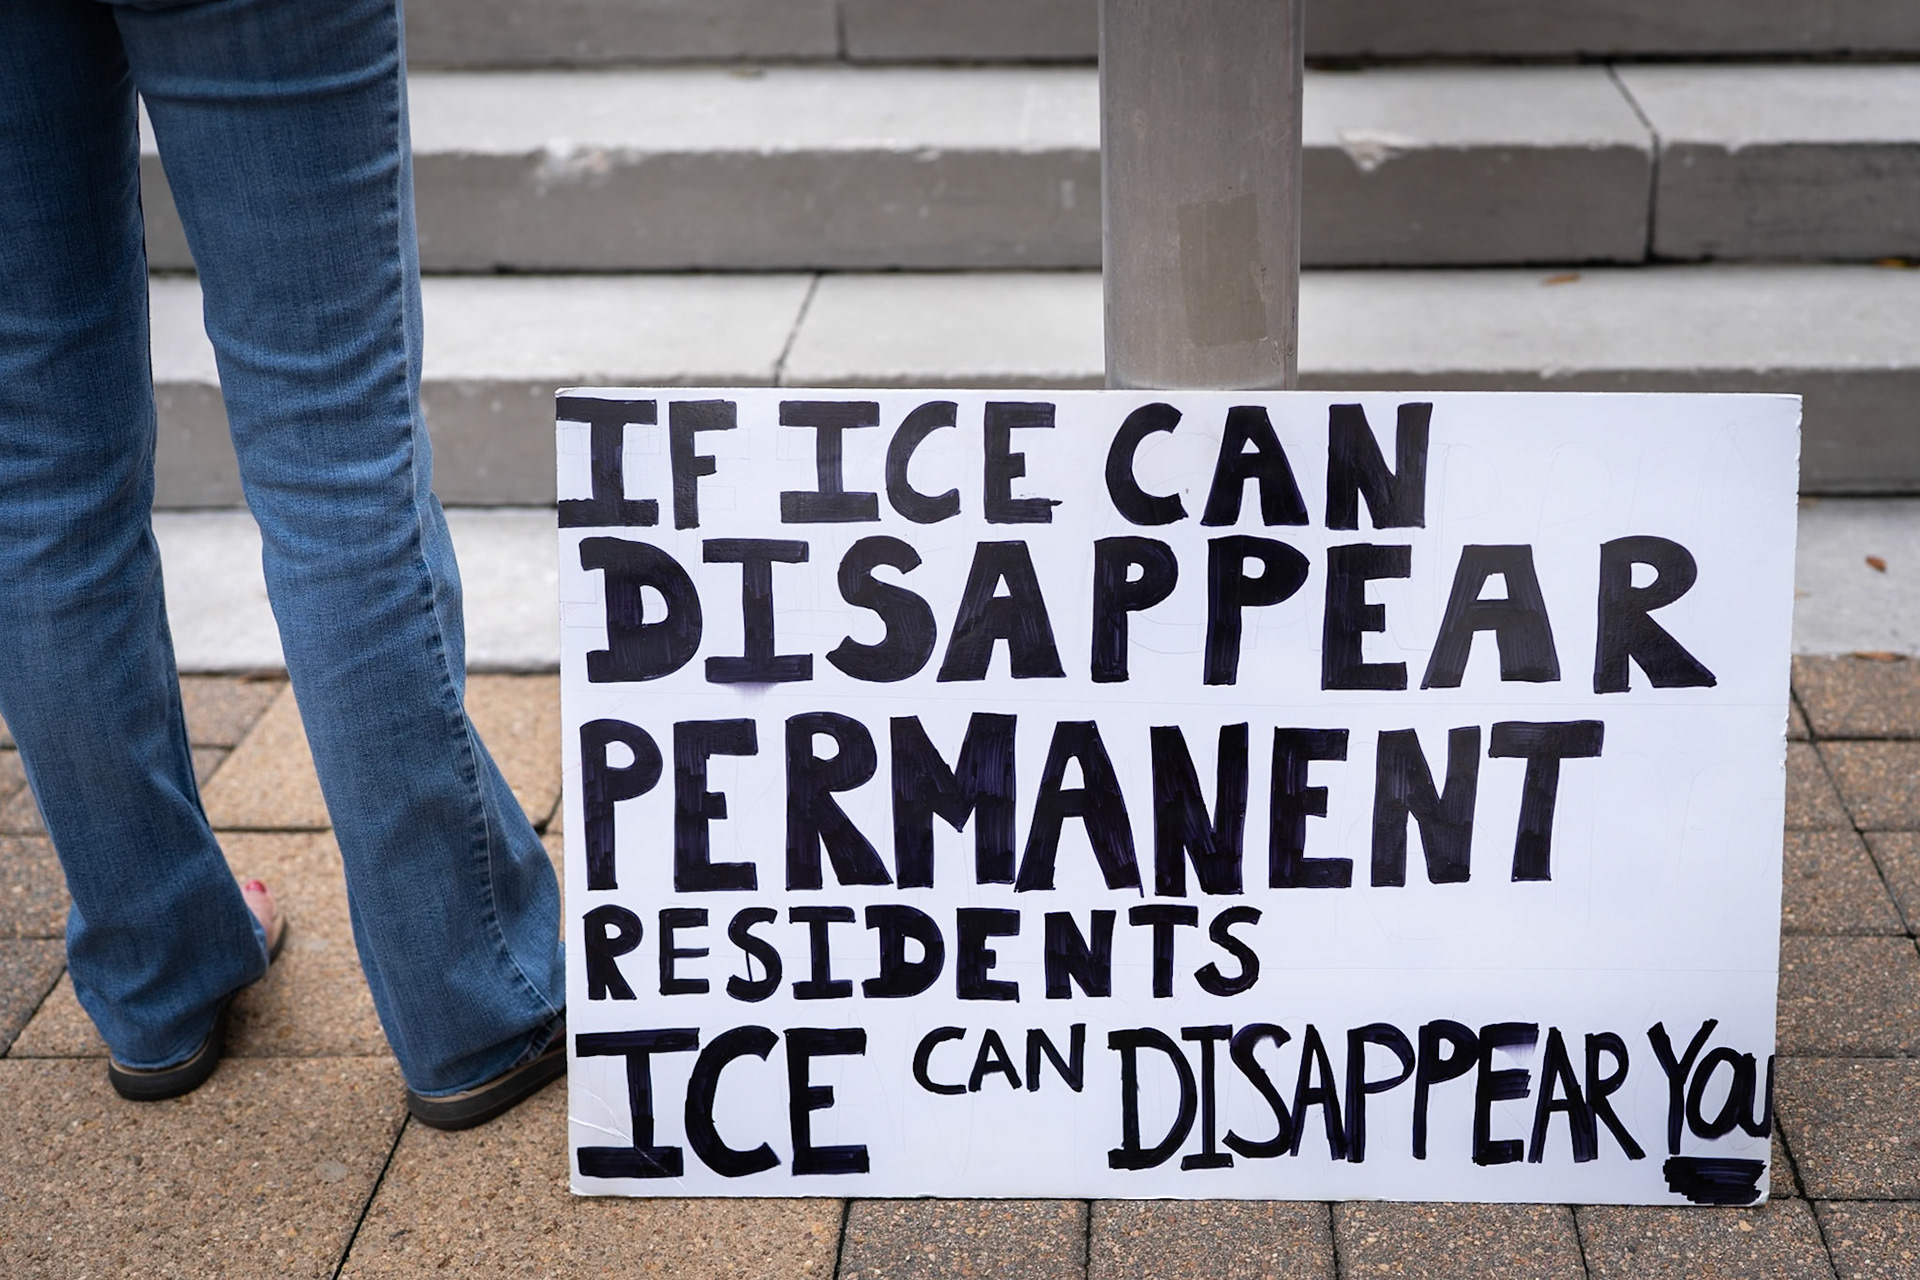 IF ICE CAN
DISAPPEAR
PERMANENT
RESIDENTS
ICE CAN DISAPPEAR YOU